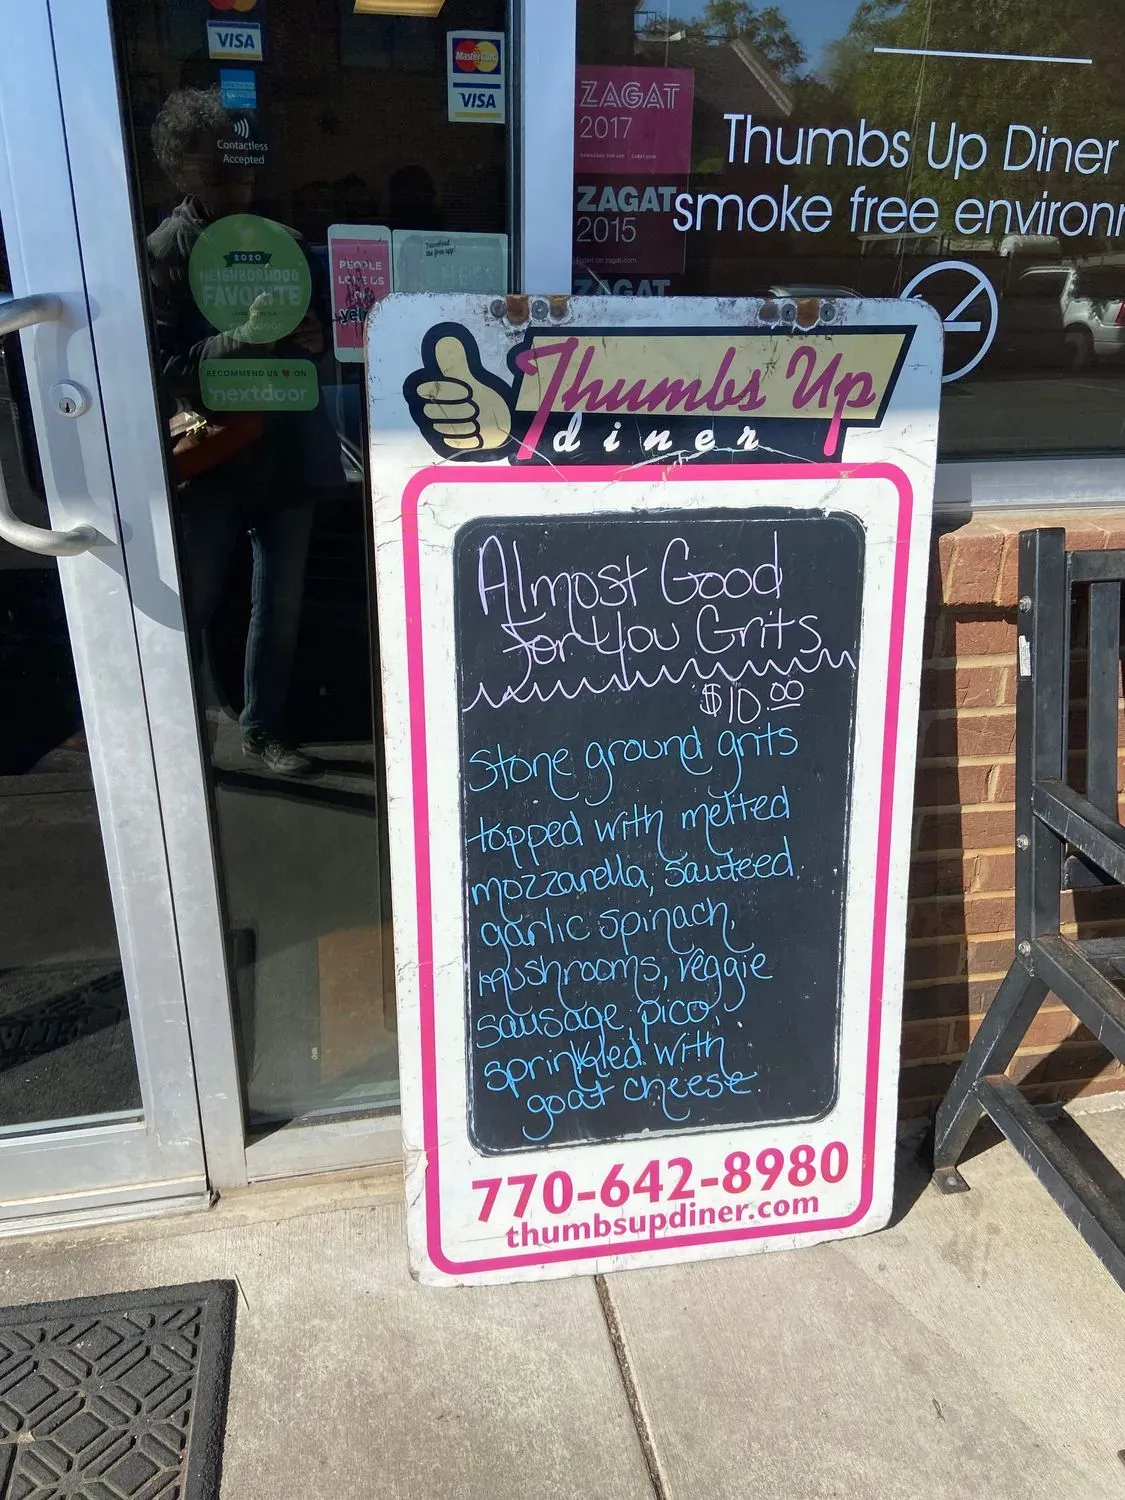 VISA
MasterCard
VISA
Contactless
Accepted
ZAGAT
2017
ZAGAT
2015
Rated on zagat.com
ZAGAT
Thumbs Up Diner
smoke free environm
2020
NEIGHBORHOOD
FAVORITE
nextdoor
RECOMMEND US ON
nextdoor
PEOPLE
LOVE US
ON
yelp
Download
the free app!
Thumbs Up
diner
Almost Good
For You Grits
$10.00
Stone ground grits
topped with melted
mozzarella, sauteed
garlic spinach,
mushrooms, veggie
sausage, pico,
sprinkled with
goat cheese
770-642-8980
thumbsupdiner.com